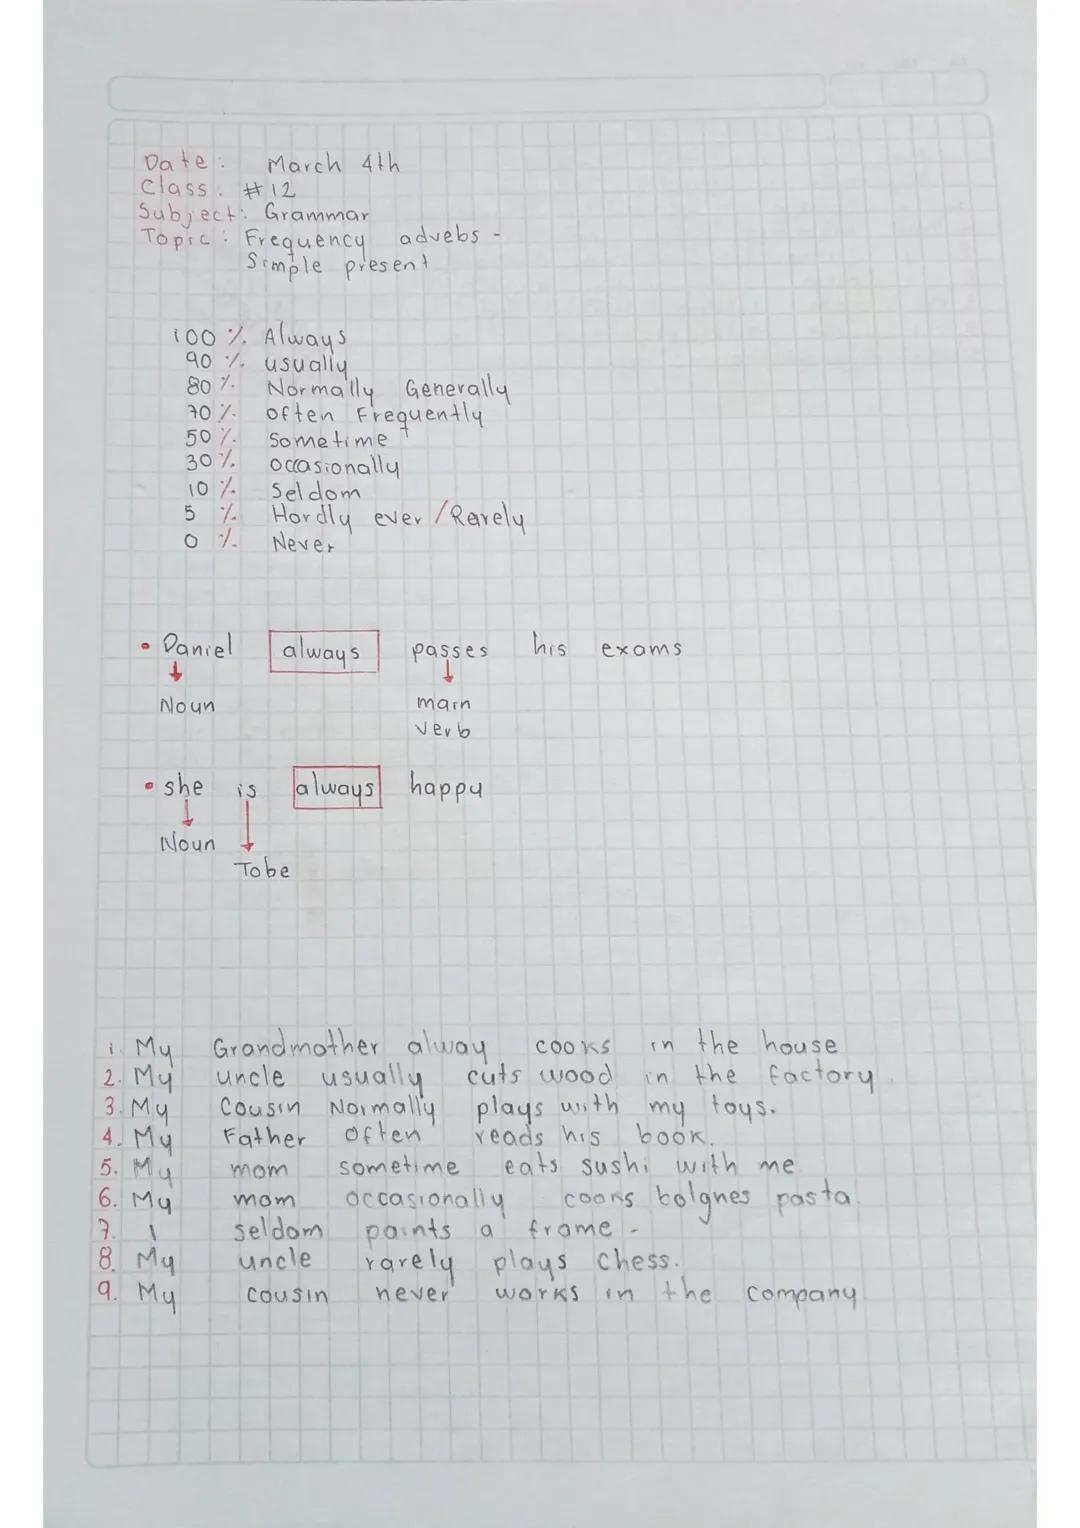 Date: March 4th
Class: #12
Subject: Grammar
Topic: Frequency advebs -
Simple present
100 % Always
90 % usually
80 % Normally Generally
70 % often Frequently
50 % Sometime
30 % occasionally
10 % Seldom
5 % Hardly ever / Rarely
0 % Never
• Daniel always passes his exams
Noun main
verb
• she is always happy
Noun
Tobe
1. My Grandmother alway cooks in the house
2. My uncle usually cuts wood in the factory.
3. My Cousin Normally plays with my toys.
4. My Father often reads his book.
5. My mom sometime eats sushi with me.
6. My mom occasionally cooks bolgnes pasta.
7. I seldom paints a frame -
8. My uncle rarely plays chess.
9. My cousin never works in the company.